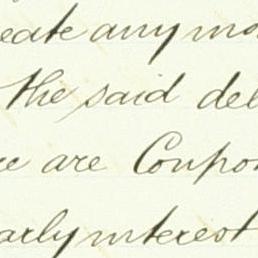 eate any mo
the said del
re are Coupo
arly interest